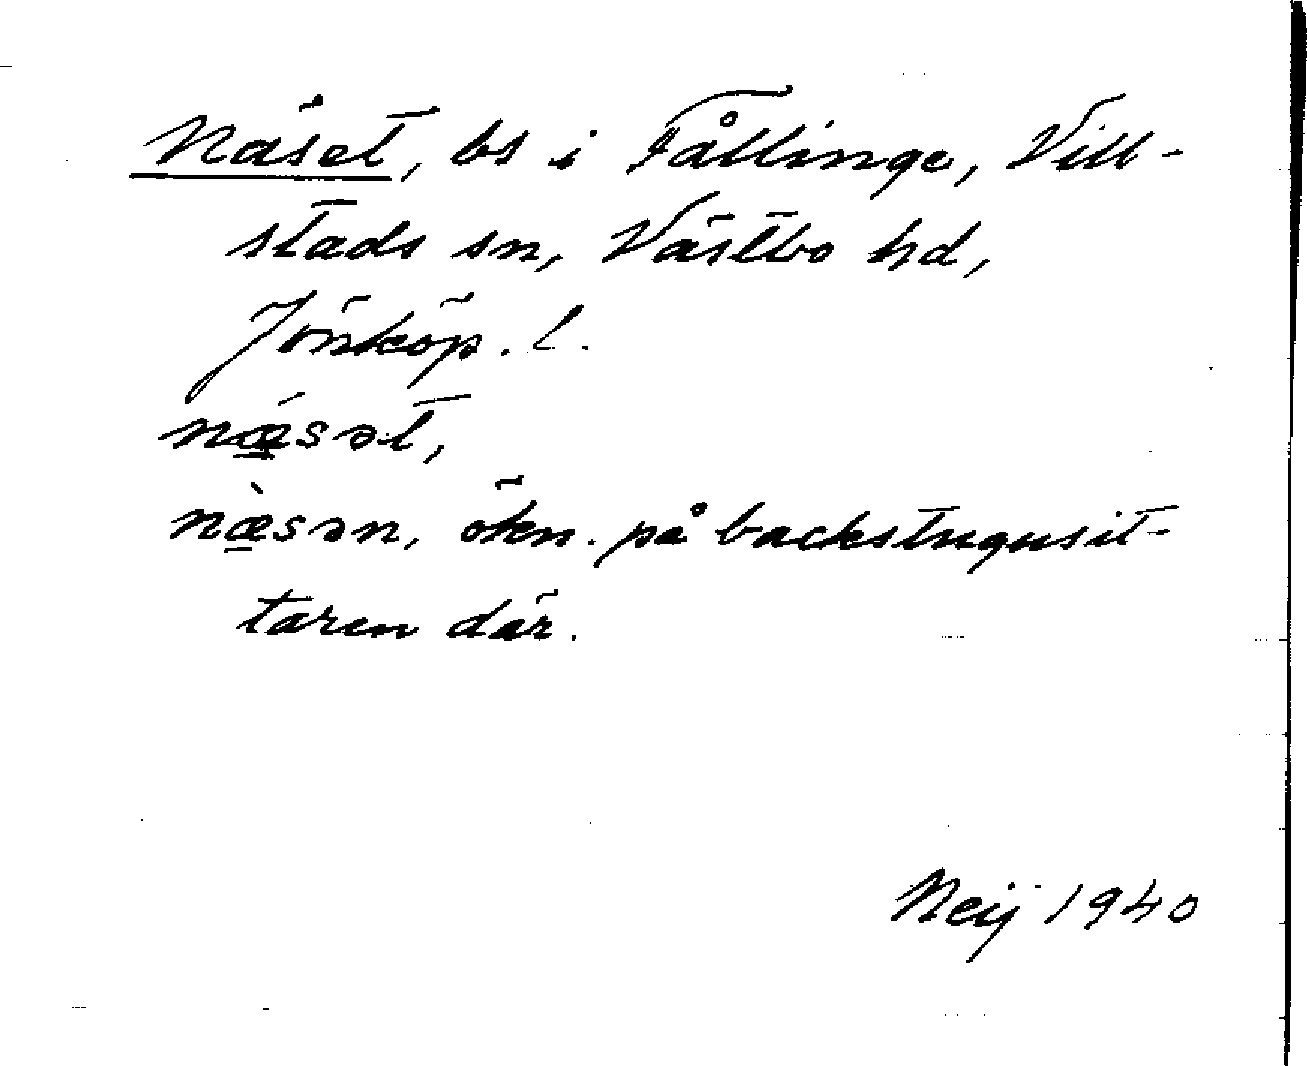 Näset, bs i Fållinge, Vill-
stads sn, Västbo hd,
Jönköp. l.
nǽ̲sət,
næ̲̀sən, ökn. på backstugusit-
taren där.
Neij 1940